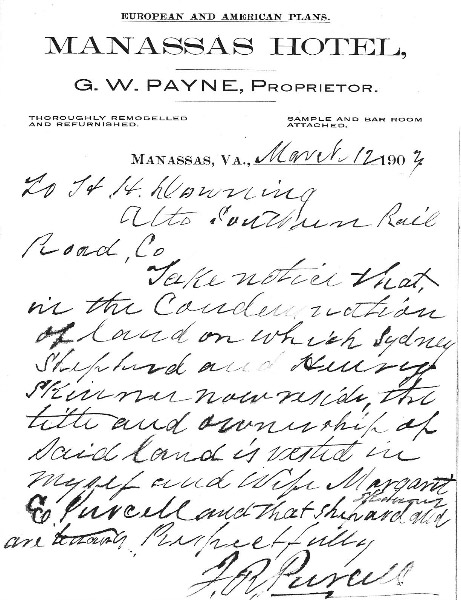 EUROPEAN AND AMERICAN PLANS.
MANASSAS HOTEL,
G. W. PAYNE, PROPRIETOR.
THOROUGHLY REMODELLED AND REFURNISHED.
SAMPLE AND BAR ROOM ATTACHED.
MANASSAS, VA., March 12 190
To H. H. Downing
Atto Southern Rail
Road, Co
Take notice that,
in the Condemnation
of land on which Sydney
Shepherd and Henry
Skinner now reside, the
title and ownership of
said land is vested in
myself and Wife Margaret
E. Purcell and that Shepard and
are Respectfully
J. R. Purcell